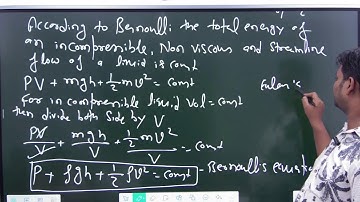 According to Bernoulli the total energy of
an incompressible, Non viscous and Streamline
flow of a liquid is const
PV + mgh + ½ mv² = const
For incompressible liquid Vol = const
then divide both side by V
PV/V + mgh/V + ½ mv²/V = const
P + ρgh + ½ ρv² = const - Bernoulli's equation
Euler's